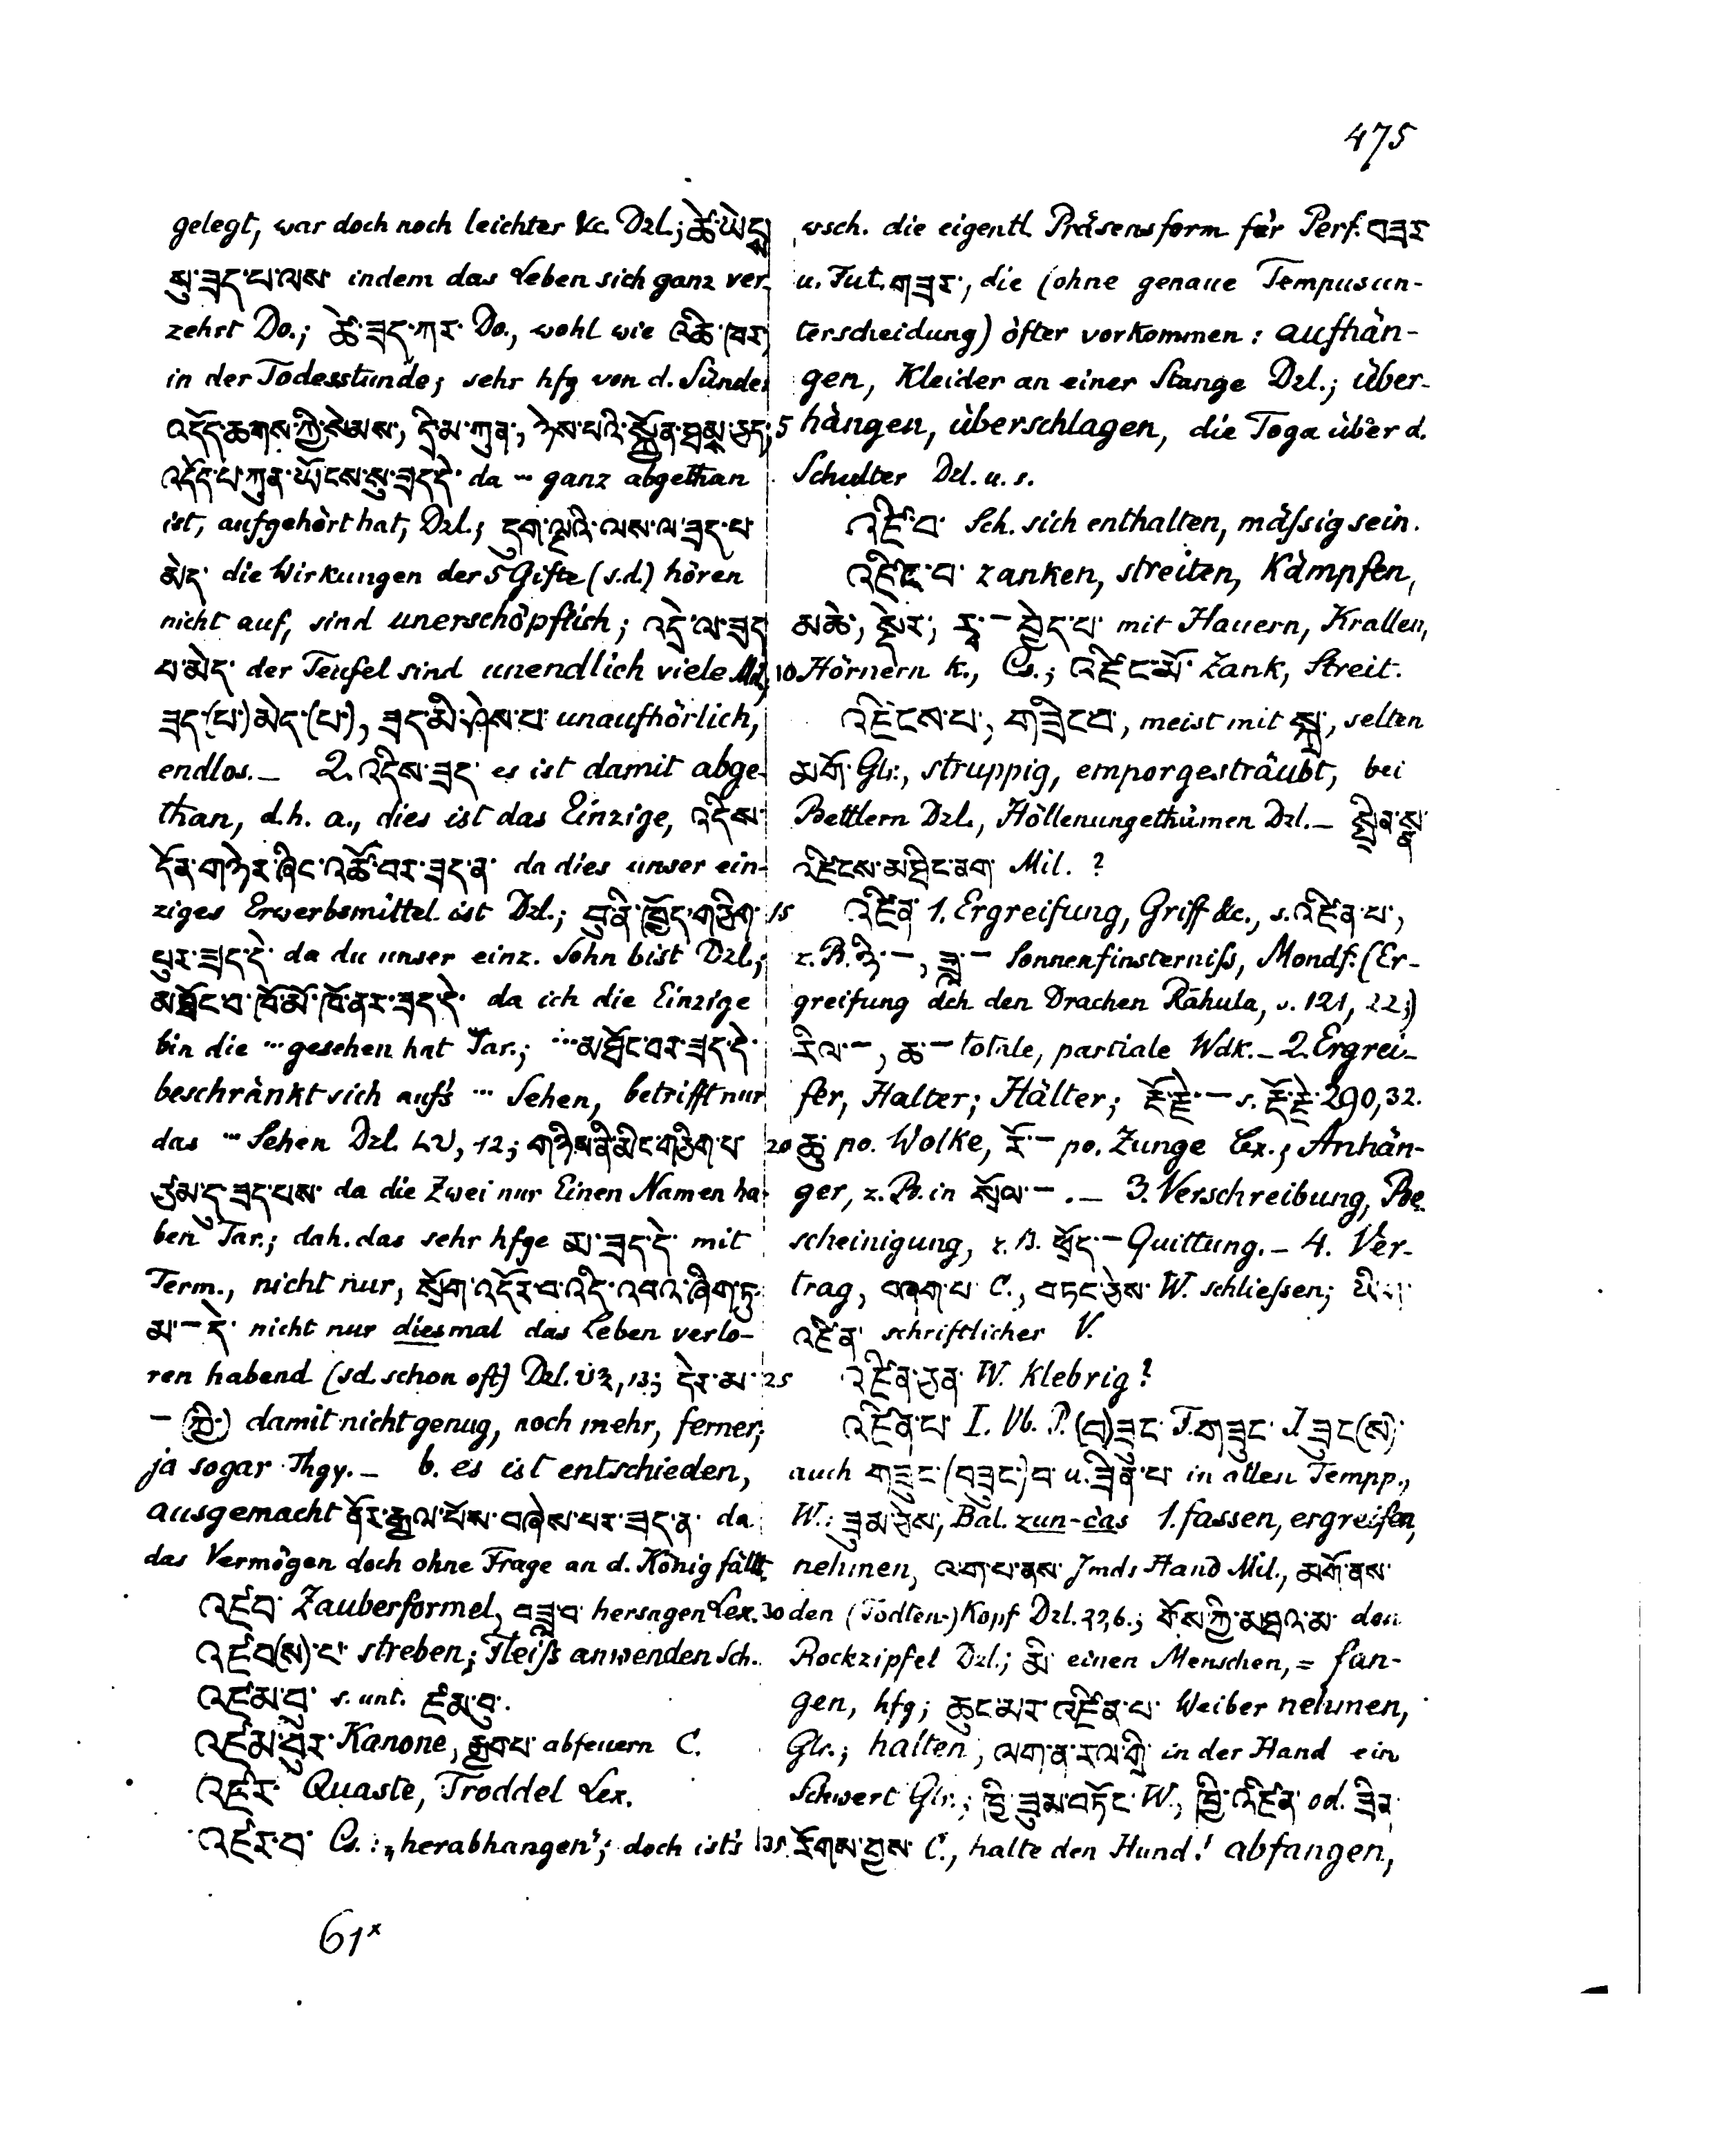 475
gelegt, war doch noch leichter &c. Dzl.; ཚེ་
སུ་ཟད་པ་ལས་ indem das Leben sich ganz ver-
zehrt Do.; ཚེ་ཟད་ཀར་ Do., wohl wie འཆི་ཁར་
in der Todesstunde; sehr hfg von d. Sünde:
འདོད་ཆགས་ཀྱི་སེམས་, དྲི་མ་ཀུན་, ཉེས་པའི་སྐྱོན་ཐམས་ཅད་, 5
འདོད་པ་ཀུན་ཡོངས་སུ་ཟད་དེ་ da ... ganz abgethan
ist, aufgehört hat, Dzl.; དུག་ལྔའི་ལས་ལ་ཟད་པ་
མེད་ die Wirkungen der 5 Gifte (s.d.) hören
nicht auf, sind unerschöpflich; འདྲེ་ལ་ཟད
པ་མེད་ der Teufel sind unendlich viele Mil. 10
ཟད་(པ་)མེད་(པ་), ཟད་མི་ཤེས་པ་ unaufhörlich,
endlos. _ 2. འདིས་ཟད་ es ist damit abge-
than, d.h. a., dies ist das Einzige, འདིས་
དོན་གཉེར་ཞིང་འཚོ་བར་ཟད་ན་ da dies unser ein-
ziges Erwerbsmittel ist Dzl.; བུ་ནི་ཁྱོད་གཅིག་ 15
པུར་ཟད་དེ་ da du unser einz. Sohn bist Dzl.;
མཐོང་བ་ཁོ་མོ་ཁོ་ནར་ཟད་དེ་ da ich die Einzige
bin die ... gesehen hat Tar.; ... མཐོང་བར་ཟད་དེ་
beschränkt sich auf's ... Sehen, betrifft nur
das ... Sehen Dzl. 12; གཉིས་ནི་མིང་གཅིག་པ་ 20
ཙམ་དུ་ཟད་པས་ da die Zwei nur Einen Namen ha-
ben Tar.; dah. das sehr hfge མ་ཟད་དེ་ mit
Term., nicht nur, སྲོག་འདོར་བ་འདི་འབའ་ཞིག་ཏུ་
མ་ – དེ་ nicht nur diesmal das Leben verlo-
ren habend (sd. schon oft) Dzl. 13; དེར་མ་ 25
– (ཀྱི་) damit nicht genug, noch mehr, ferner,
ja sogar Thgy. _ b. es ist entschieden,
ausgemacht ནོར་རྒྱལ་པོས་བཞེས་པར་ཟད་ན་ da
das Vermögen doch ohne Frage an d. König fällt.
འཛབ་ Zauberformel, བཟླ་བ་ hersagen Lex. 30
འཛབ(ས)་པ་ streben; Fleiß anwenden Sch.
འཛམ་བུ་ s. unt. ཛམ་བུ་.
འཛམ་བུར་ Kanone, རྒྱབ་པ་ abfeuern C.
འཛར་ Quaste, Troddel Lex.
འཛར་བ་ Cs.: „herabhangen“; doch ist's 35
wsch. die eigentl. Präsensform für Perf. བཟར
u. Fut. གཟར་, die (ohne genaue Tempusun-
terscheidung) öfter vorkommen: aufhän-
gen, Kleider an einer Stange Dzl.; über-
hängen, überschlagen, die Toga über d.
Schulter Dzl. u. s.
འཛི་བ་ Sch. sich enthalten, mäßig sein.
འཛིང་བ་ zanken, streiten, kämpfen,
མཆེ་, སྡེར་, རྭ་ – བྱེད་པ་ mit Hauern, Krallen,
Hörnern k., Cs.; འཛིང་མོ་ Zank, Streit.
འཛིངས་པ་, གཟིངབ་, meist mit སྐྲ་, selten
མགོ་ Glr., struppig, emporgesträubt, bei
Bettlern Dzl., Höllenungethümen Dzl. _ སྤྲིན་སྣ་
འཛིངས་མཐིང་ནག་ Mil. ?
འཛིན་ 1. Ergreifung, Griff &c., s. འཛིན་པ་,
z. B. ཉི་ –, ཟླ་ – Sonnenfinsterniß, Mondf. (Er-
greifung dch den Drachen Rāhula, s. 121, 22;)
རིལ་ –, ཆ་ – totale, partiale Wdk. _ 2. Ergrei-
fer, Halter; Hälter; རྡོ་རྗེ་ – s. རྡོ་རྗེ་ 290, 32.
ཆུ་ po. Wolke, རོ་ – po. Zunge Lex.; Anhän-
ger, z. B. in སྲོལ་ – . _ 3. Verschreibung, Be-
scheinigung, z. B. སྤྲོད་ – Quittung. _ 4. Ver-
trag, བཞག་པ་ C., བཏང་ཅེས་ W. schließen;
འཛིན་ schriftlicher V.
འཛིན་ཅན་ W. klebrig?
འཛིན་པ་ I. Vb. P. (བ)ཟུང་ F. གཟུང་ I. ཟུང(ས)་
auch གཟུང་(བཟུང་)བ་ u. ཟིན་པ་ in allen Tempp.,
W.: ཟུམ་ཅེས་, Bal. zun-čas 1. fassen, ergreifen,
nehmen, ལག་པ་ནས་ Jmds Hand Mil., མགོ་ནས་
den (Todten-) Kopf Dzl. 6.; གོས་ཀྱི་མཐའ་མ་ den
Rockzipfel Dzl.; མི་ einen Menschen, = fan-
gen, hfg; ཆུང་མར་འཛིན་པ་ Weiber nehmen,
Glr.; halten, ལག་ན་རལ་གྲི་ in der Hand ein
Schwert Glr.; ཁྱི་ཟུམ་བཏོང་ W., ཁྱི་འཛིན་ od. ཟིན་
རོགས་བྱས་ C., halte den Hund! abfangen,
61*